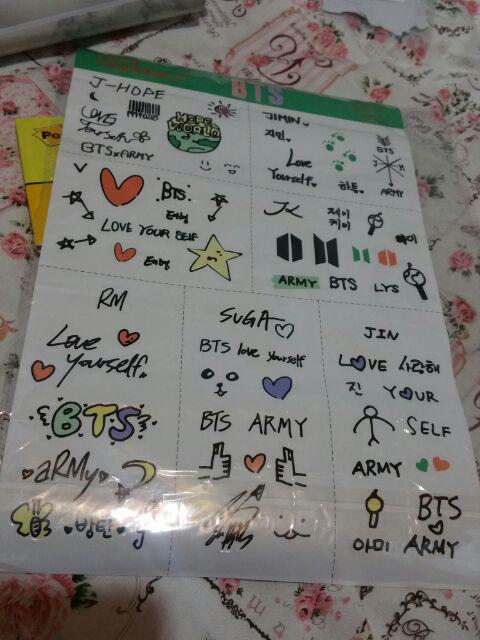 BTS
J-HOPE
LOVE
Yourself
HOPE
WORLD
BTS×ARMY
JIMIN
지민
Love
Yourself
하트
BTS
ARMY
BTS
태형
LOVE YOUR SELF
태형
JK
제이
케이
ARMY
BTS
LYS
RM
Love
Yourself
BTS
aRMy
방탄
SUGA
BTS love yourself
BTS ARMY
JIN
LOVE 사랑해
진 YOUR
SELF
ARMY
BTS
아미 ARMY